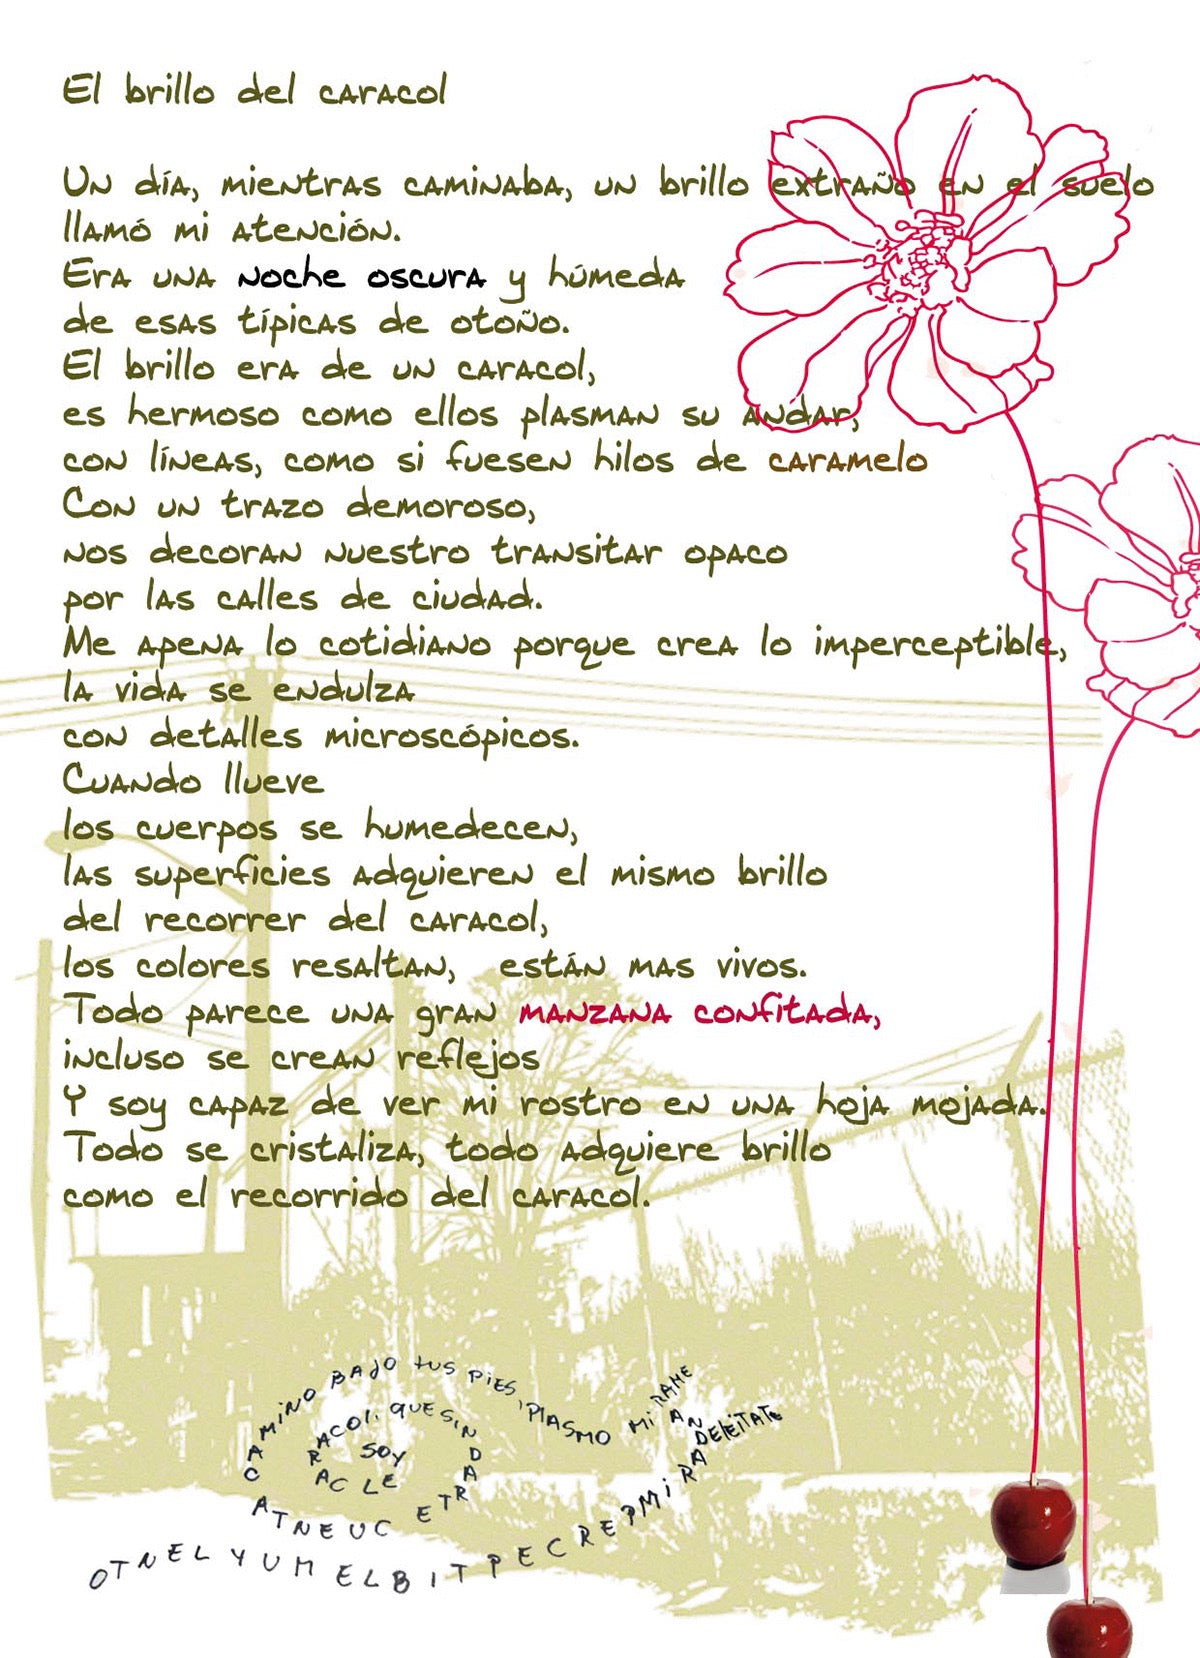 El brillo del caracol
Un día, mientras caminaba, un brillo extraño en el suelo
llamó mi atención.
Era una noche oscura y húmeda
de esas típicas de otoño.
El brillo era de un caracol,
es hermoso como ellos plasman su andar,
con líneas, como si fuesen hilos de caramelo
Con un trazo demoroso,
nos decoran nuestro transitar opaco
por las calles de ciudad.
Me apena lo cotidiano porque crea lo imperceptible,
la vida se endulza
con detalles microscópicos.
Cuando llueve
los cuerpos se humedecen,
las superficies adquieren el mismo brillo
del recorrer del caracol,
los colores resaltan, están mas vivos.
Todo parece una gran manzana confitada,
incluso se crean reflejos
Y soy capaz de ver mi rostro en una hoja mojada.
Todo se cristaliza, todo adquiere brillo
como el recorrido del caracol.
SOY EL CARACOL, QUE SIN DARTE CUENTA CAMINO BAJO tUS PiES, PlASMO Mi ANDAR iMPERCEPTIBLE MUY LENTO
RAME
DELEITATE